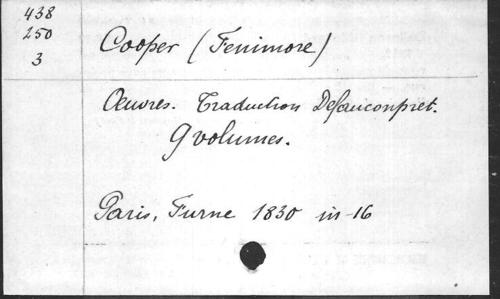 438
250
3
Cooper (Fenimore)
Œuvres. Traduction Defauconpret.
9 volumes.
Paris, Furne 1830 in-16